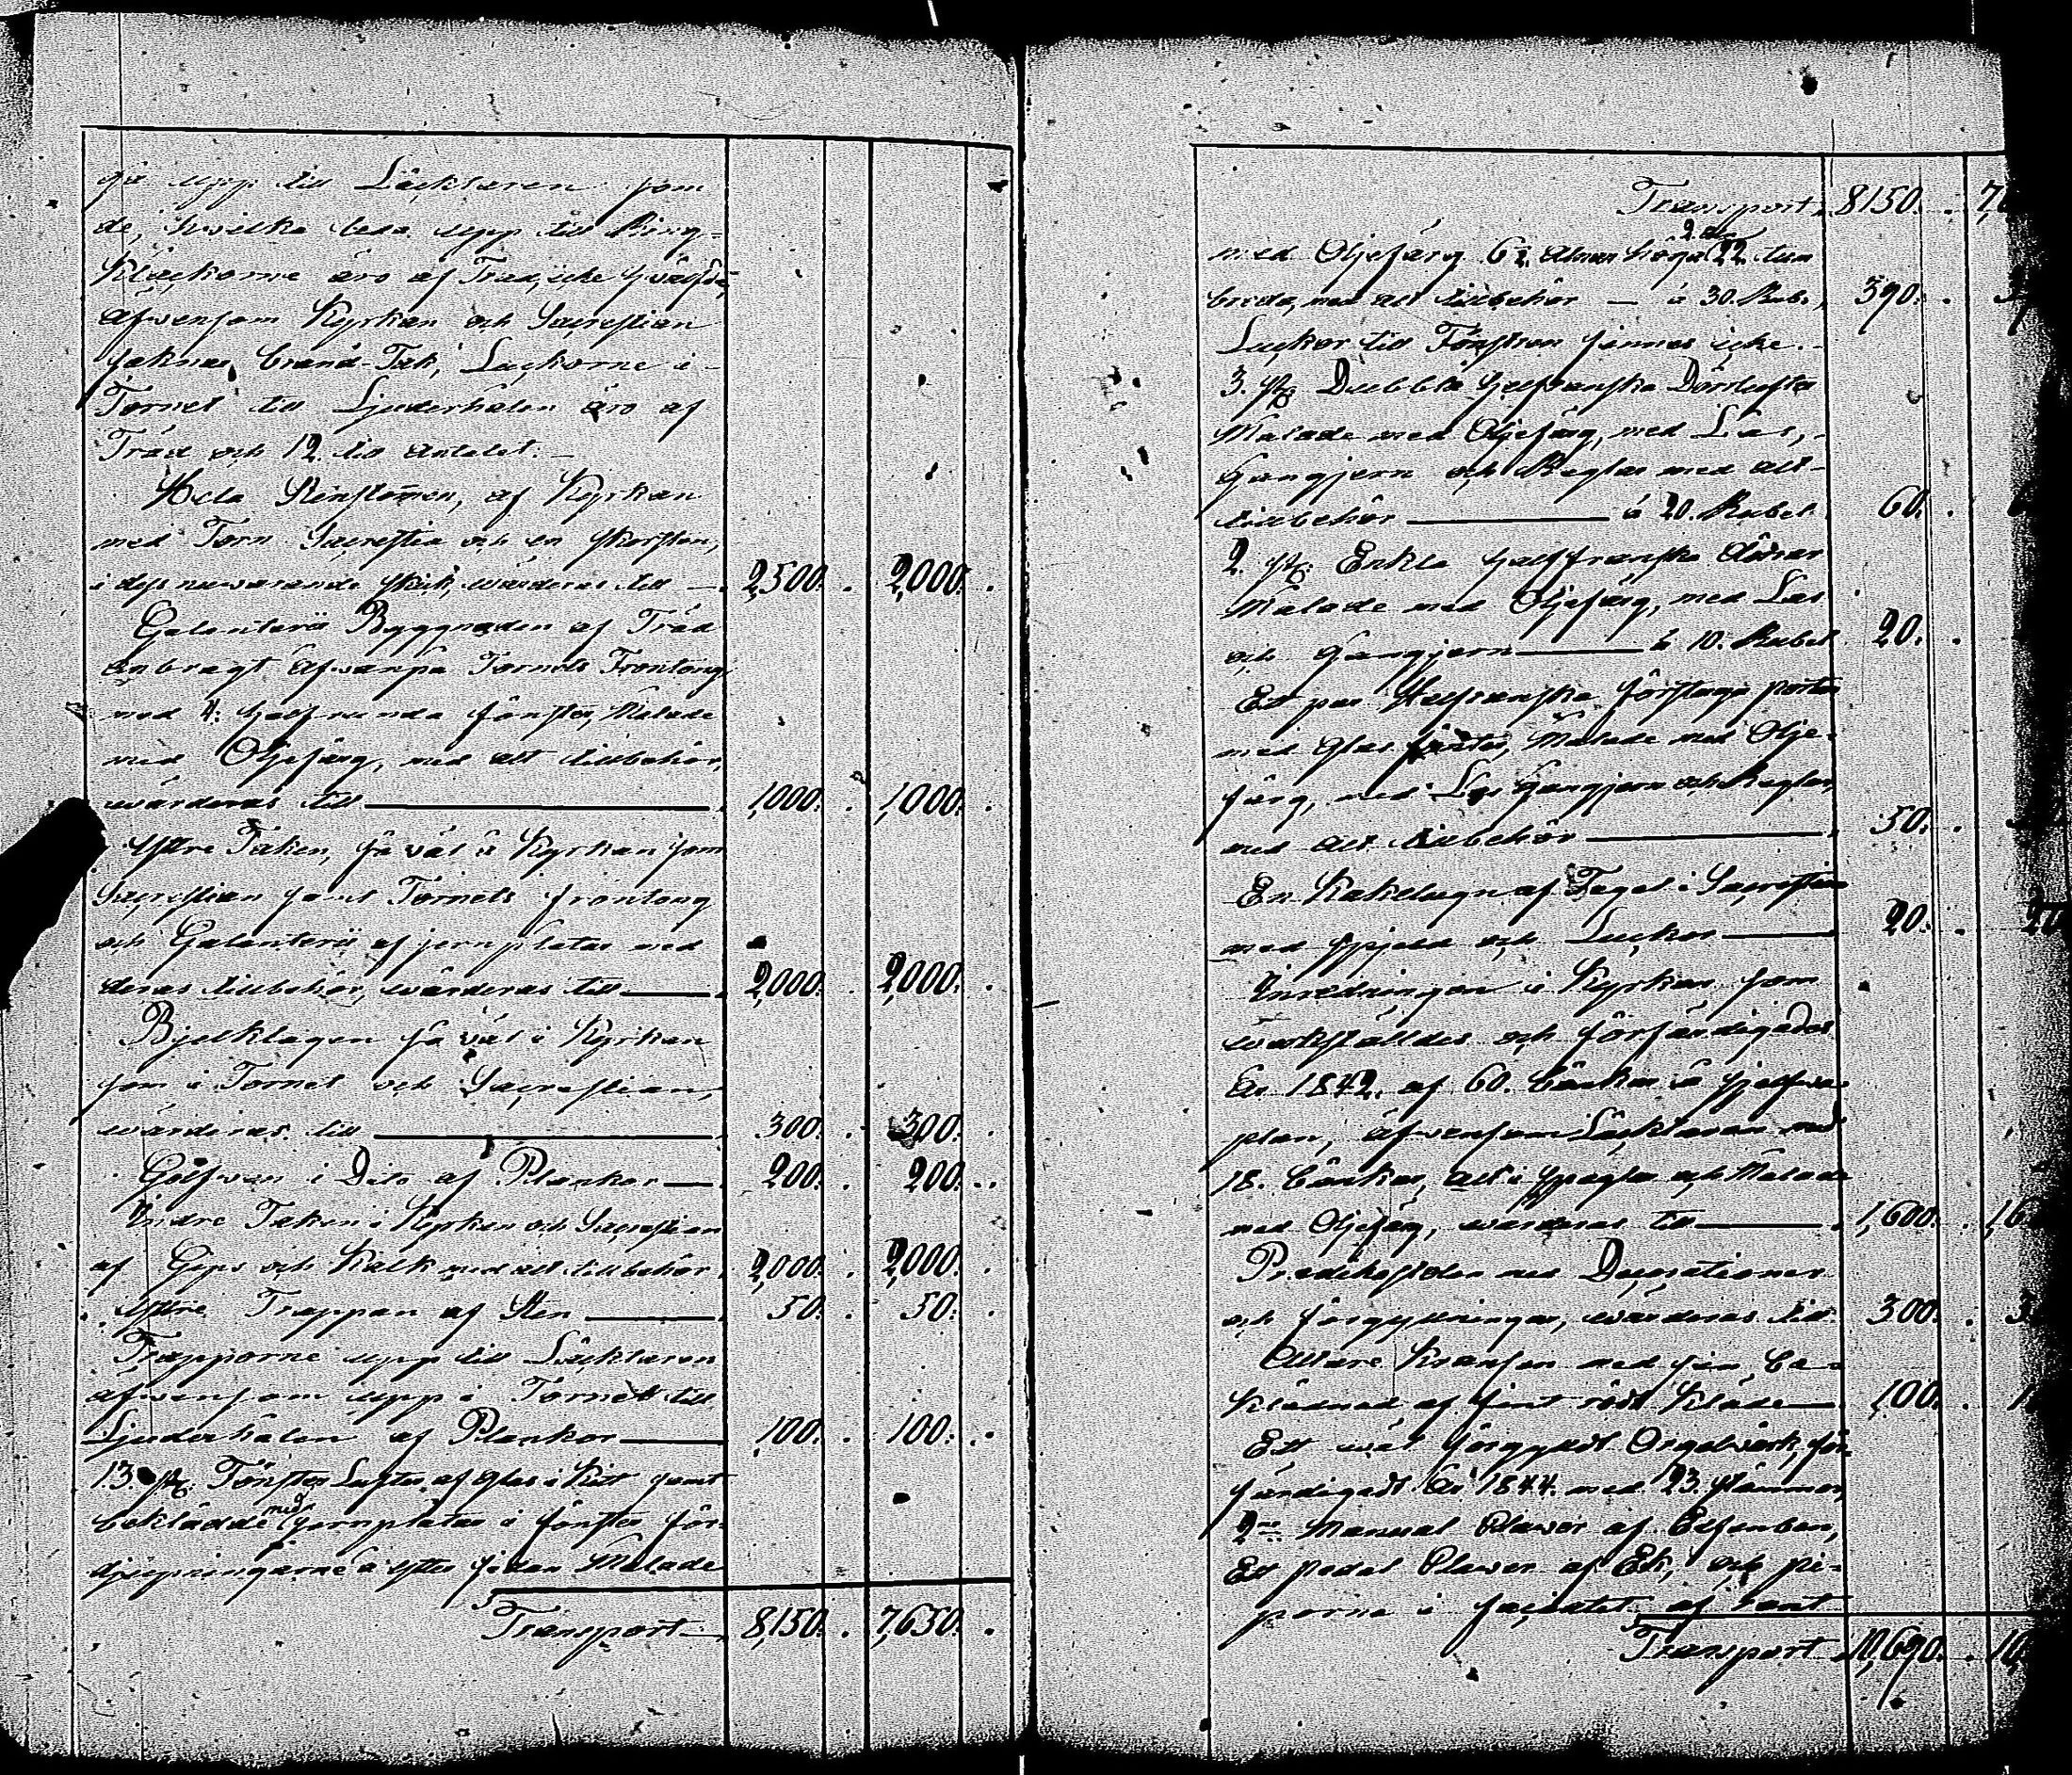 gå upp till Läcktaren som
de, hvilka leda upp till Ring-
Klockorne äro af Träd, icke hvälfde,
äfvensom Kyrkan och Sacrestian
saknar brand-Tak, Luckorne i
Tornet till Ljuderhålen äro af
Träd och 12. till antalet. –
Hela Stenstommen, af Kyrkan
med Torn Sacrestia och en skorsten,
i dess nuvarande skick, wärderas till – 2,500. . 2,000. .
Galanterie Byggnaden af Träd
anbragt äfvanpå Tornets Frontong
med 4. halfrunda fönster, Målade
med Oljefärg, med alt tillbehör,
wärderas till 1,000. . 1,000. .
Yttre Taken, så väl å Kyrkan som
Sacrestian samt Tornets frontong
och Galanterie af jernplåtar med
deras tillbehör, wärderas till 2,000. . 2,000. .
Bjelklagen så väl i Kyrkan
som i Tornet och Sacrestian,
wärderas till 300. . 300. .
Golfven i Dito af Plankor 200. . 200. .
Indre Taken i Kyrkan och Sacrestian
af Gips och Kalk med alt tillbehör 2,000. . 2,000. .
Yttre Trappan af Sten 50. . 50. .
Trapporne upp till Läcktaren
äfvensom upp i Tornet till
Ljuderhålen af Plankor 100. . 100. .
13. st. Fönster Lufter af Glas i Kitt samt
beklädde med jernplåtar i fönster för-
djupningarne å yttre sidan Målade
Transport 8,150. . 7,650. .
Transport 8150. .
med Oljefärg 6½ Alnar höga 2 al 22 tum
breda, med alt tillbehör – à 30. Rub. 390. .
Luckor till Fönstren finnes icke. –
3. st. Dubbla halffranska Dörrlufter
Målade med Oljefärg, med Lås,
Gångjern och Reglar med alt
tillbehör à 20. Rubel 60. .
2. st. Enkla halffranska dörrar
Målade med Oljefärg, med Lås
och Gångjern à 10. Rubel 20. .
Ett par Halfranska förstugu portar
med Glas fönster, Målade med Olje-
färg, med Lås Gångjern och Reglar,
med alt tillbehör 50. .
En Kakelugn af Tegel i Sacrestian
med spjeld och Luckor 20. . 20
Inredningen i Kyrkan som
werkställdes och förfärdigades
År 1842. af 60. bänkar å sjelfva
plan, äfvensom Läcktaren med
18. bänkar, alt i speglar och Målade
med Oljefärg, wärderas till 1,600. .
Predikostolen med Decorationer
och förgyllningar, wärderas till 300. .
Altare Kransen med sin be-
klädnad af fint rödt Kläde 100. .
Ett wäl förgyldt Orgelwerk, för-
färdigadt År 1844. med 23. stämmor,
2ne Manual Claver af Elfenben,
Ett pedal Claver af Ek, och pi-
porna i façadet af tent
Transport 10,690. .